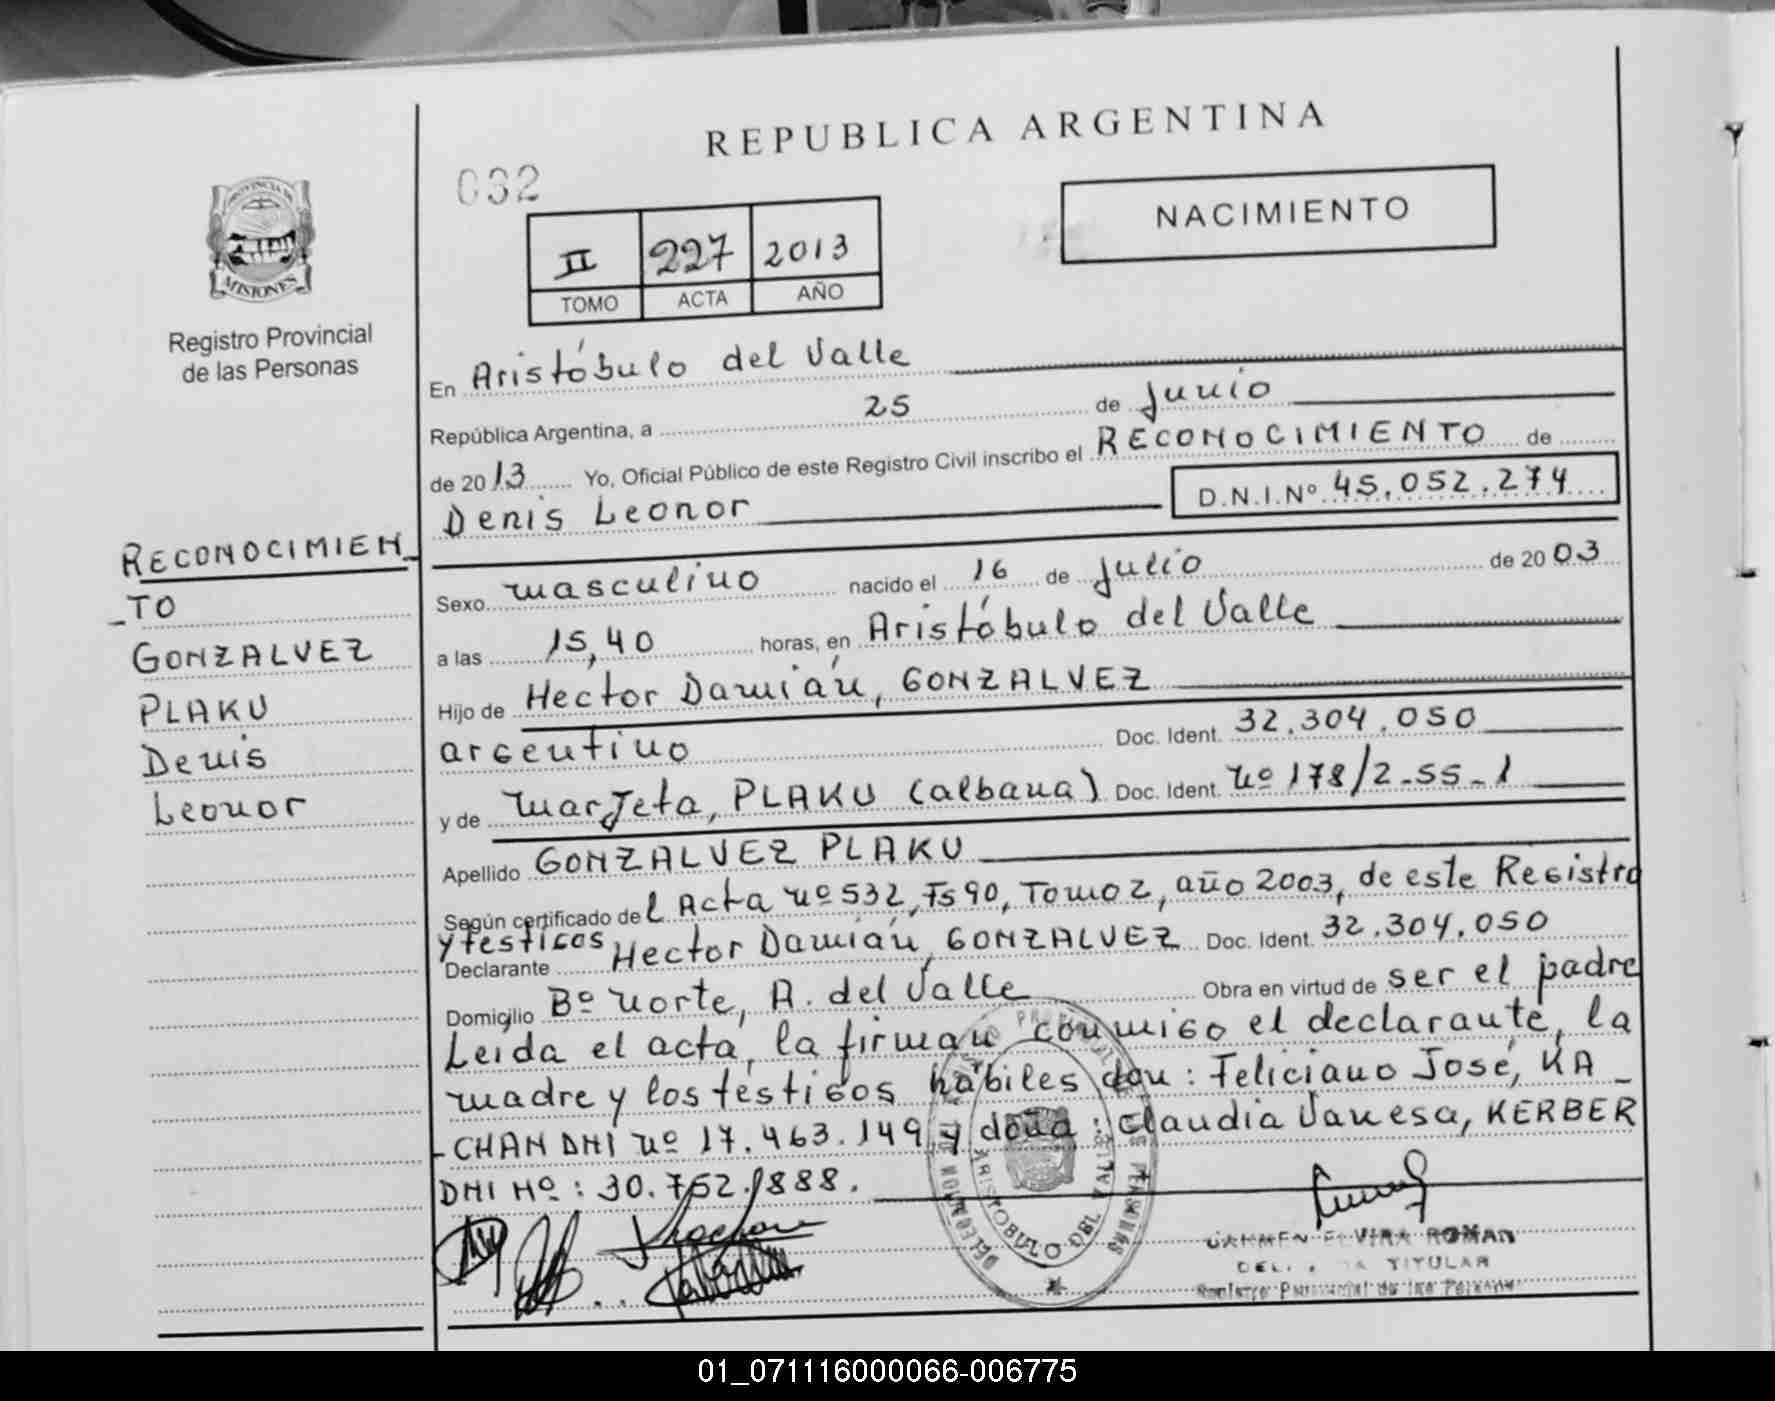 REPUBLICA ARGENTINA
032
NACIMIENTO
II 227 2013
TOMO ACTA AÑO
PROVINCIA DE
MISIONES
Registro Provincial
de las Personas
En Aristóbulo del Valle
República Argentina, a 25 de Junio
de 2013 Yo, Oficial Público de este Registro Civil inscribo el RECONOCIMIENTO de
Denis Leonor D.N.I.Nº 45.052.274
RECONOCIMIEN_
_TO
GONZALVEZ
PLAKU
Denis
Leonor
Sexo masculino nacido el 16 de Julio de 2003
a las 15,40 horas, en Aristóbulo del Valle
Hijo de Hector Damián, GONZALVEZ
argentino Doc. Ident. 32.304.050
y de Marjeta, PLAKU (albana) Doc. Ident. Nº 178/2-55-1
Apellido GONZALVEZ PLAKU
Según certificado del Acta nº 532, Fs 90, Tomo 2, año 2003, de este Registro
y testigos
Declarante Hector Damián, GONZALVEZ Doc. Ident. 32.304.050
Domicilio Bº Norte, A. del Valle Obra en virtud de ser el padre
Leida el acta, la firman conmigo el declarante, la
madre y los testigos hábiles don: Feliciano José, KA_
-CHAN DNI nº 17.463.149 y doña: Claudia Vanesa, KERBER
DNI Nº: 30.752.888.
ARISTOBULO DEL VALLE
CARMEN ELVIRA ROMAN
TITULAR
Registro Provincial de las Personas
01_071116000066-006775